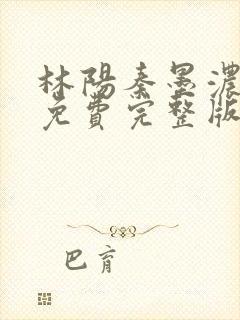 林陽秦墨濃
免費完整版
巴育